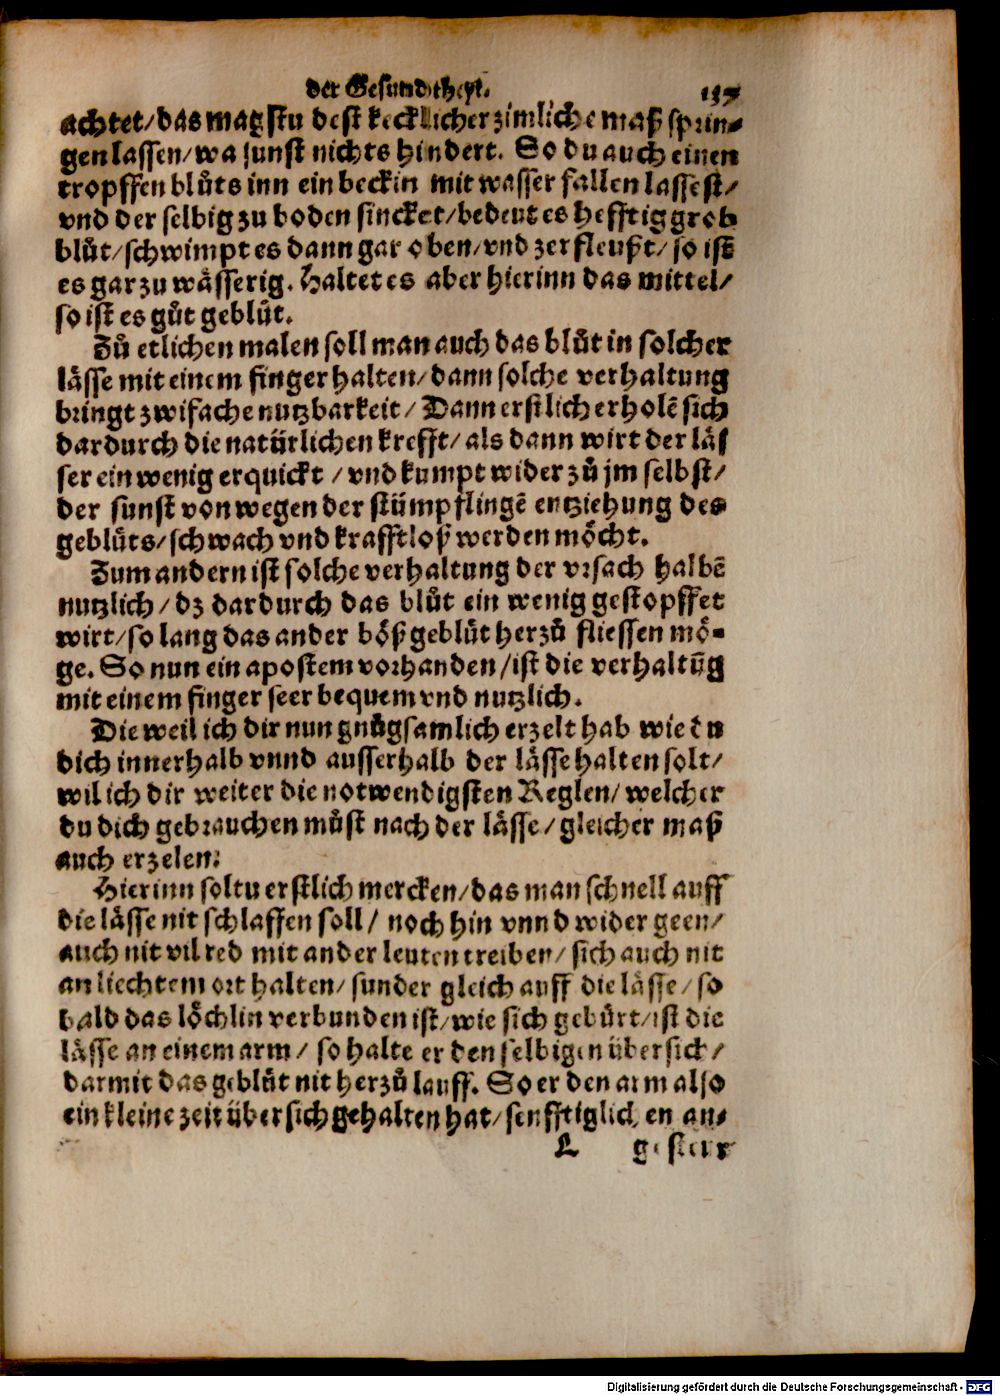 der Gesundtheyt. 137
achtet/das magstu dest kecklicher zimliche maß sprin-
gen lassen/wa sunst nichts hindert. So du auch einen
tropffen blůts inn ein beckin mit wasser fallen lassest/
vnd der selbig zu boden sincket/bedeut es hefftig grob
blůt/schwimpt es dann gar oben/vnd zerfleußt/so ist
es gar zu wåsserig. Haltet es aber hierinn das mittel/
so ist es gůt geblůt.
Zů etlichen malen soll man auch das blůt in solcher
låsse mit einem finger halten/dann solche verhaltung
bringt zwifache nutzbarkeit/Dann erstlich erholē sich
dardurch die natürlichen krefft/als dann wirt der lås
ser ein wenig erquickt/vnd kumpt wider zů jm selbst/
der sunst von wegen der stümpflingē entziehung des
geblůts/schwach vnd krafftloß werden mȯcht.
Zum andern ist solche verhaltung der vrsach halbē
nutzlich/dz dardurch das blůt ein wenig gestopffet
wirt/so lang das ander bȯß geblůt herzů fliessen mȯ-
ge. So nun ein apostem vorhanden/ist die verhaltūg
mit einem finger seer bequem vnd nutzlich.
Die weil ich dir nun gnůgsamlich erzelt hab wie du
dich innerhalb vnnd ausserhalb der låsse halten solt/
wil ich dir weiter die notwendigsten Reglen/welcher
du dich gebrauchen můst nach der låsse/gleicher maß
auch erzelen.
Hierinn soltu erstlich mercken/das man schnell auff
die låsse nit schlaffen soll/noch hin vnnd wider geen/
auch nit vil red mit ander leuten treiben/sich auch nit
an liechtem ort halten/sunder gleich auff die låsse/so
bald das lȯchlin verbunden ist/wie sich gebürt/ist die
låsse an einem arm/so halte er den selbigen über sich/
darmit das geblůt nit herzů lauff. So er den arm also
ein kleine zeit über sich gehalten hat/senfftiglichen an-
L
Digitalisierung gefördert durch die Deutsche Forschungsgemeinschaft - DFG